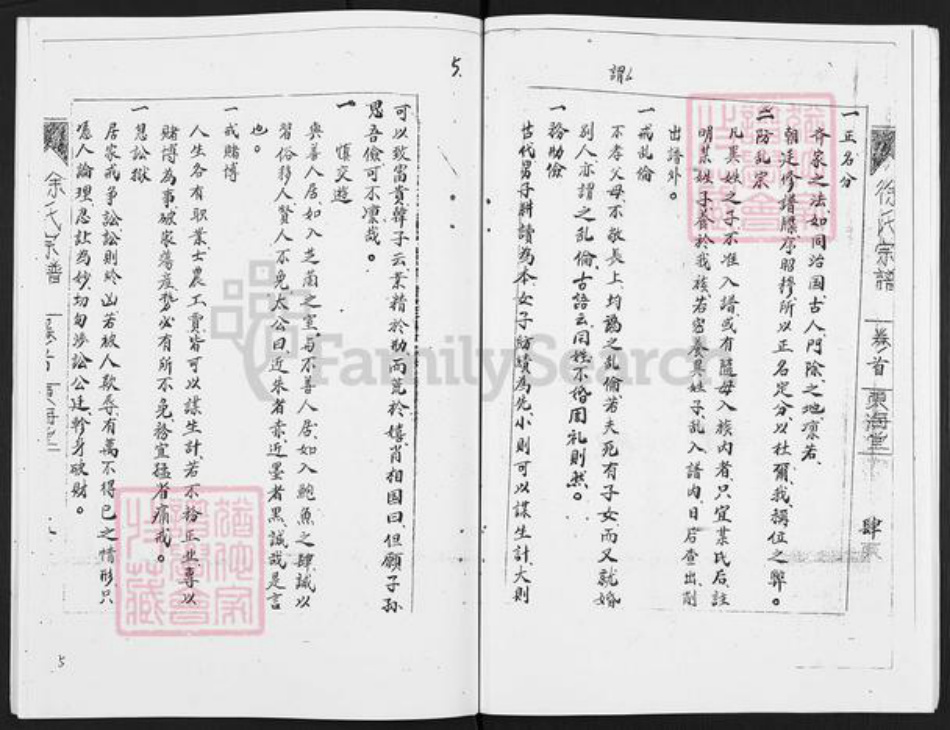 謂
一正名分
齊家之法如同治国古人門除之地凛若
朝廷修譜牒序昭穆所以正名定分以杜爾我稱位之弊。
二防乱宗
凡異姓之子不准入譜或有隨母入族內者只宜某氏后註
明某姓子養於我族若密養異姓子乱入譜內日后查出削
出譜外。
一戒乱倫
不孝父母不敬長上均為之乱倫若夫死有子女而又就婚
別人亦謂之乱倫古語云同姓不婚周礼則然。
一務勤儉
古代男子耕讀為本女子紡績為先小則可以謀生計大則
徐氏宗譜
卷首
東海堂
肆
5.
可以致富貴韓子云業精於勤而荒於嬉肖相国曰但願子孫
思吾儉可不凛哉。
一 慎交遊
與善人居如入芝蘭之室与不善人居如入鮑魚之肆誠以
習俗移人賢人不免太公曰近朱者赤近墨者黑誠哉是言
也。
一戒賭博
人生各有职業士農工賈皆可以謀生計若不務正业專以
賭博為事破家蕩產势必有所不免務宜猛省痛戒。
一息訟獄
居家戒争訟訟則終凶若被人欺辱有萬不得已之情形只
憑人論理忍让為妙切勿涉訟公廷軫身破財。
余氏宗譜
5
FamilySearch